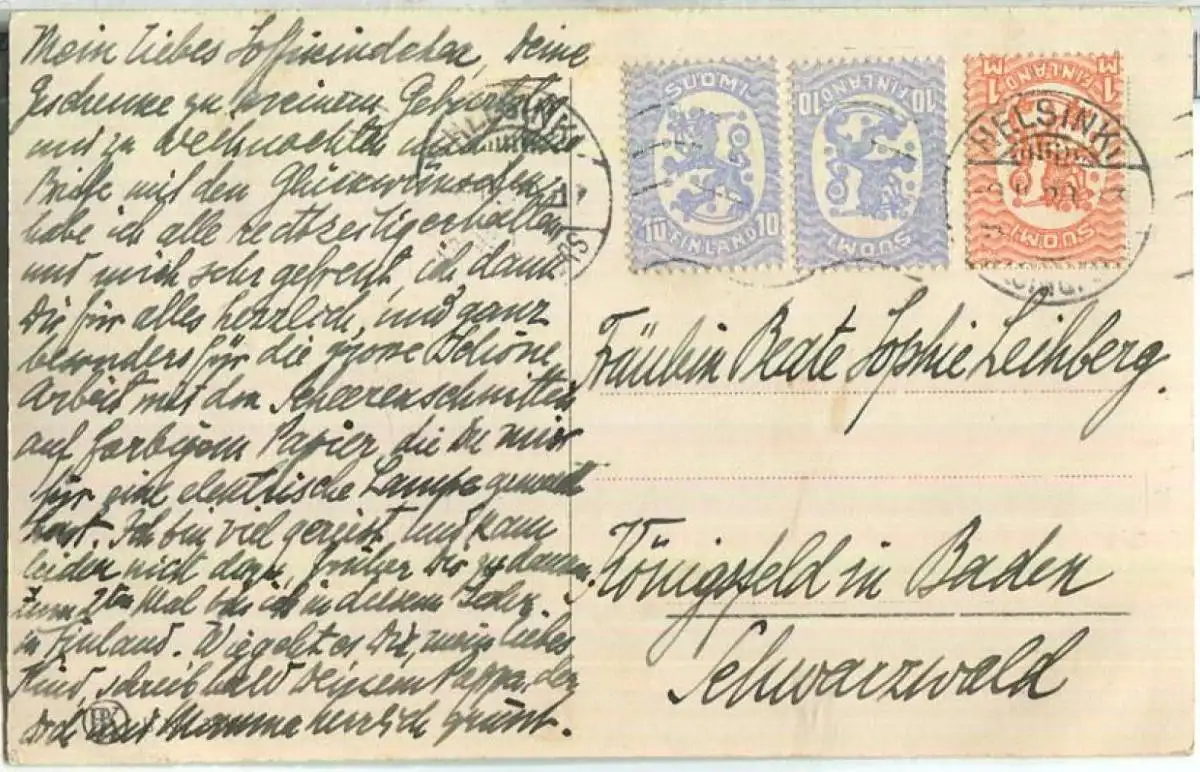 Mein liebes Soffikindchen, Deine
Geschenke zu meinem Geburtstag
und zu Weihnachten und die
Briefe mit den Glückwünschen
habe ich alle rechtzeitig erhalten
und mich sehr gefreut, ich danke
Dir für alles herzlich, und ganz
besonders für die grosse schöne
Arbeit mit den Scheerenschnitten
auf farbigem Papier, die Du mir
für eine elektrische Lampe gemacht
hast. Ich bin viel gereist und kam
leider nicht dazu, früher Dir zu danken.
Zum 2ten Mal bin ich in diesem Leben
in Finland. Wie geht es Dir, mein liebes
Kind, schreib bald Deinem Pappa, der
Dich und Mamma herzlich grüsst.
SUOMI
10 FINLAND 10
FINLAND
10 10
SUOMI
1 M FINLAND 1 M
SUOMI
HELSINKI
HELSINKI
Fräulein Beate Sophie Leihberg.
Königsfeld in Baden
Schwarzwald